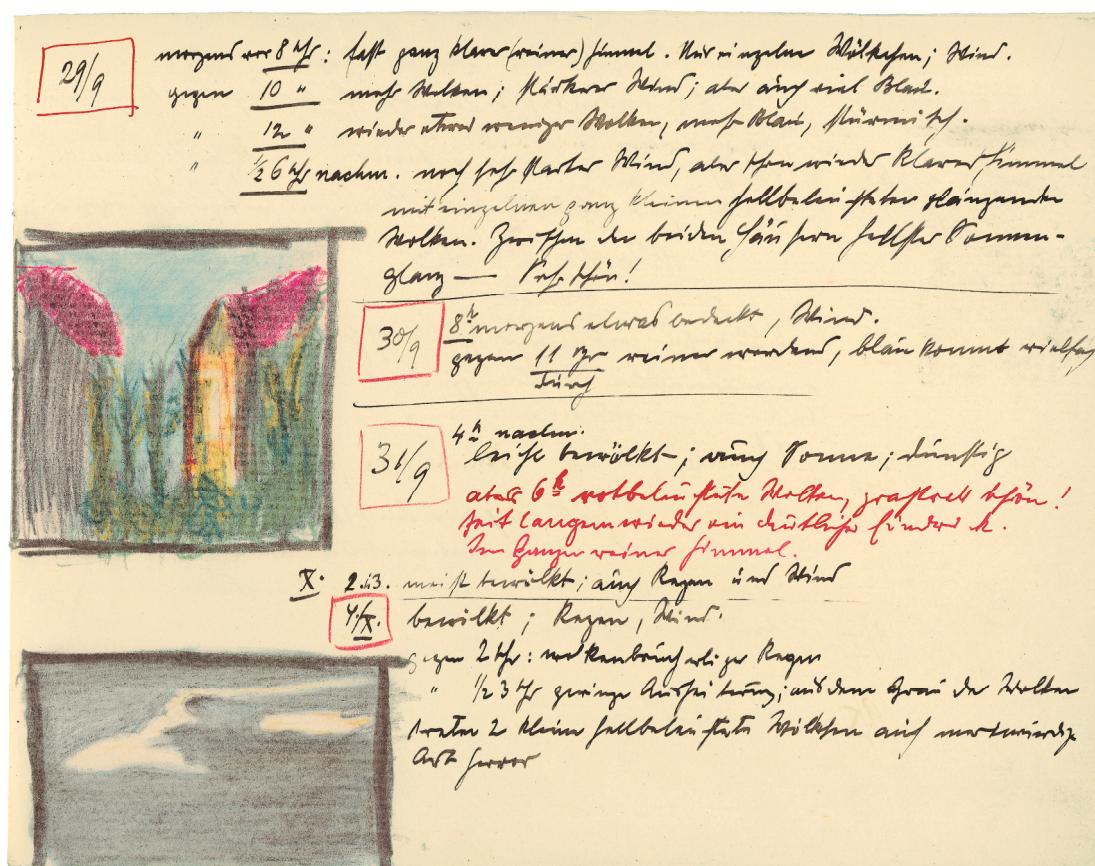 29/9 morgens vor 8 Uhr: fast ganz klarer (reiner) Himmel. Nur einzelne Wölkchen; Wind.
gegen 10 " mehr Wolken; stärkerer Wind; aber auch viel Blau.
" 12 " wieder etwas weniger Wolken, mehr Blau, stürmisch.
" ½ 6 Uhr nachm. noch sehr starker Wind, aber schon wieder klarer Himmel
mit einzelnen ganz kleinen hellbeleuchteten glänzenden
Wolken. Zwischen den beiden Häusern hellster Sonnen-
glanz — Sehr schön!
30/9 8h morgens etwas bedeckt, Wind.
gegen 11 Uhr reiner werdend, blau kommt vielfach
durch
31/9 4h nachm.
leicht bewölkt; auch Sonne; dünstig
abds 6h rotbeleuchtete Wolken, prachtvoll schön!
Seit langem wieder ein deutlicher Eindruck.
Im Ganzen reiner Himmel.
X. 2.u3. meist bewölkt; auch Regen und Wind
4./X. bewölkt; Regen, Wind.
gegen 2 Uhr: wolkenbruchartiger Regen
" ½ 3 Uhr geringe Aufheiterung; aus dem Grau der Wolken
treten 2 kleine hellbeleuchtete Wölkchen auf merkwürdige
Art hervor